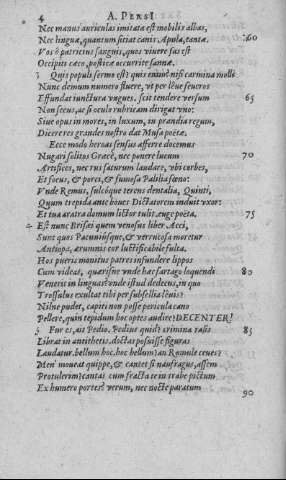 4 A. PERSI
Nec manus auriculas imitata est mobilis albas,
Nec linguæ, quantum sitiat canis, Apula, tantæ. 60
Vos ô patricius sanguis, quos vivere fas est
Occipiti cæco, posticæ occurrite sannæ.
Quis populi sermo est? quis enim? nisi carmina molli
Nunc demum numero fluere, vt per leve severos
Effundat iunctura vngues. scit tendere versum 65
Non secus, ac si oculo rubricam dirigat vno:
Siue opus in mores, in luxum, in prandia regum,
Dicere res grandes nostro dat Musa poëtæ.
Ecce modo heroas sensus afferre docemus
Nugari solitos Græcè, nec ponere lucum 70
Artifices, nec rus saturum laudare, vbi corbes,
Et focus, & porci, & fumosa Palilia fœno:
Vnde Remus, sulcóque terens dentalia, Quinti,
Quum trepida ante boues Dictatorem induit vxor:
Et tua aratra domum lictor tulit. euge poëta. 75
Est nunc Brisæi quem venosus liber Acci,
Sunt quos Pacuviúsque, & verrucosa moretur
Antiopa, ærumnis cor luctificabile fulta.
Hos pueris monitus patres infundere lippos
Cum videas, quærisne vnde hæc sartago loquendi 80
Venerit in linguas? vnde istud dedecus, in quo
Trossulus exultat tibi per subsellia lævis?
Nilne pudet, capiti non posse pericula cano
Pellere, quin tepidum hoc optes audire? DECENTER!
Fur es, ait Pedio. Pedius quid? crimina rasis 85
Librat in antithetis. doctas posuisse figuras
Laudatur. bellum hoc. hoc bellum? an Romule ceues?
Men' moveat quippe, & cantet si naufragus, assem
Protulerim? cantas cum fracta te in trabe pictum
Ex humero portes? verum, nec nocte paratum 90